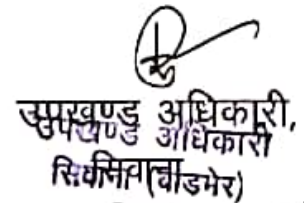 उपखण्ड अधिकारी,
उपखण्ड अधिकारी
सिवाना (बाडमेर)